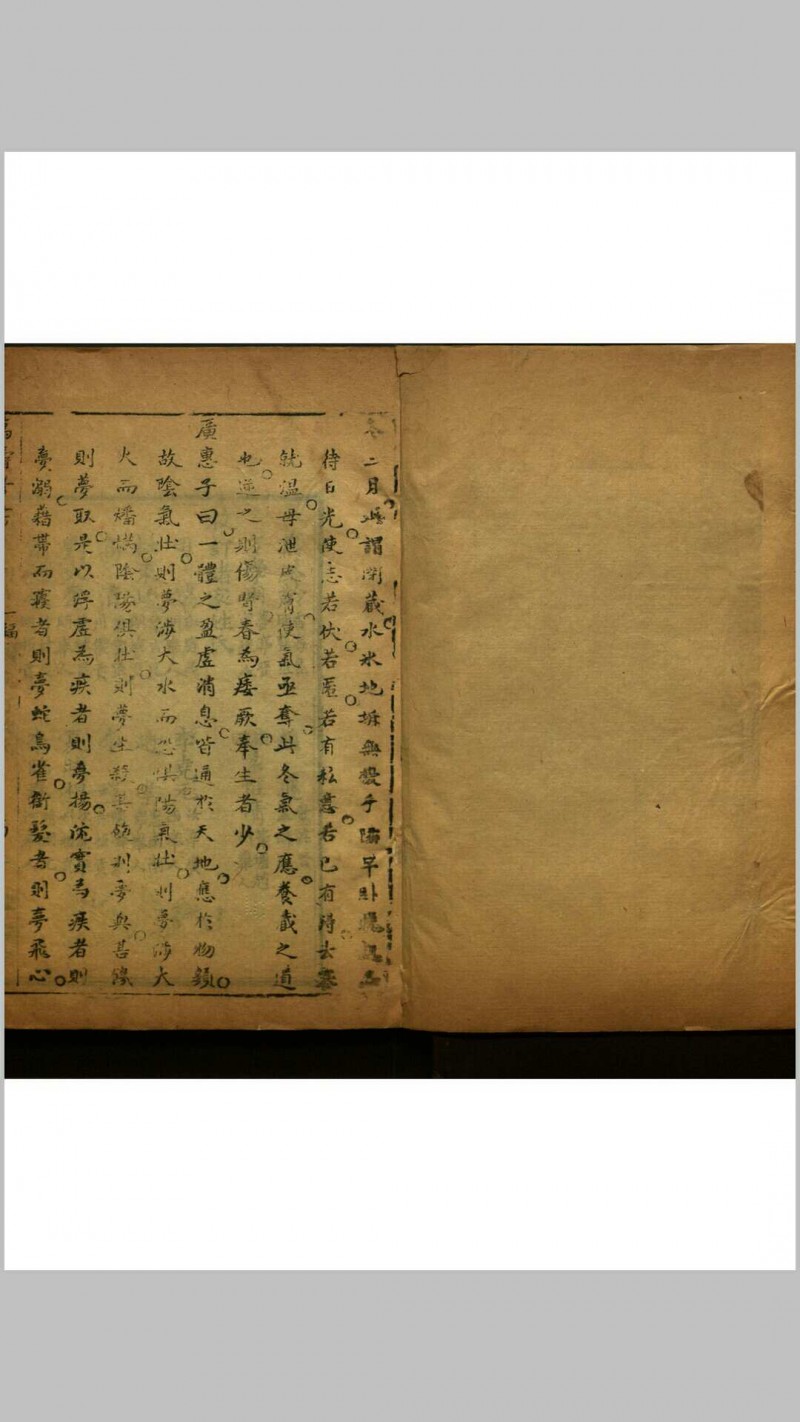 冬三月此謂閉藏水氷地坼無擾乎陽早卧晚起必
待日光使志若伏若匿若有私意若已有得去寒
就温毋泄皮膚使氣亟奪此冬氣之應養藏之道
也逆之則傷腎春為痿厥奉生者少
廣惠子曰一體之盈虛消息皆通於天地應於物類
故陰氣壯則夢涉大水而恐惧陽氣壯則夢涉大
火而燔焫陰陽俱壯則夢生殺甚飽則夢與甚饑
則夢取是以浮虛為疾者則夢揚沉實為疾者則
夢溺藉帶而寢者則夢蛇鳥雀銜髮者則夢飛心